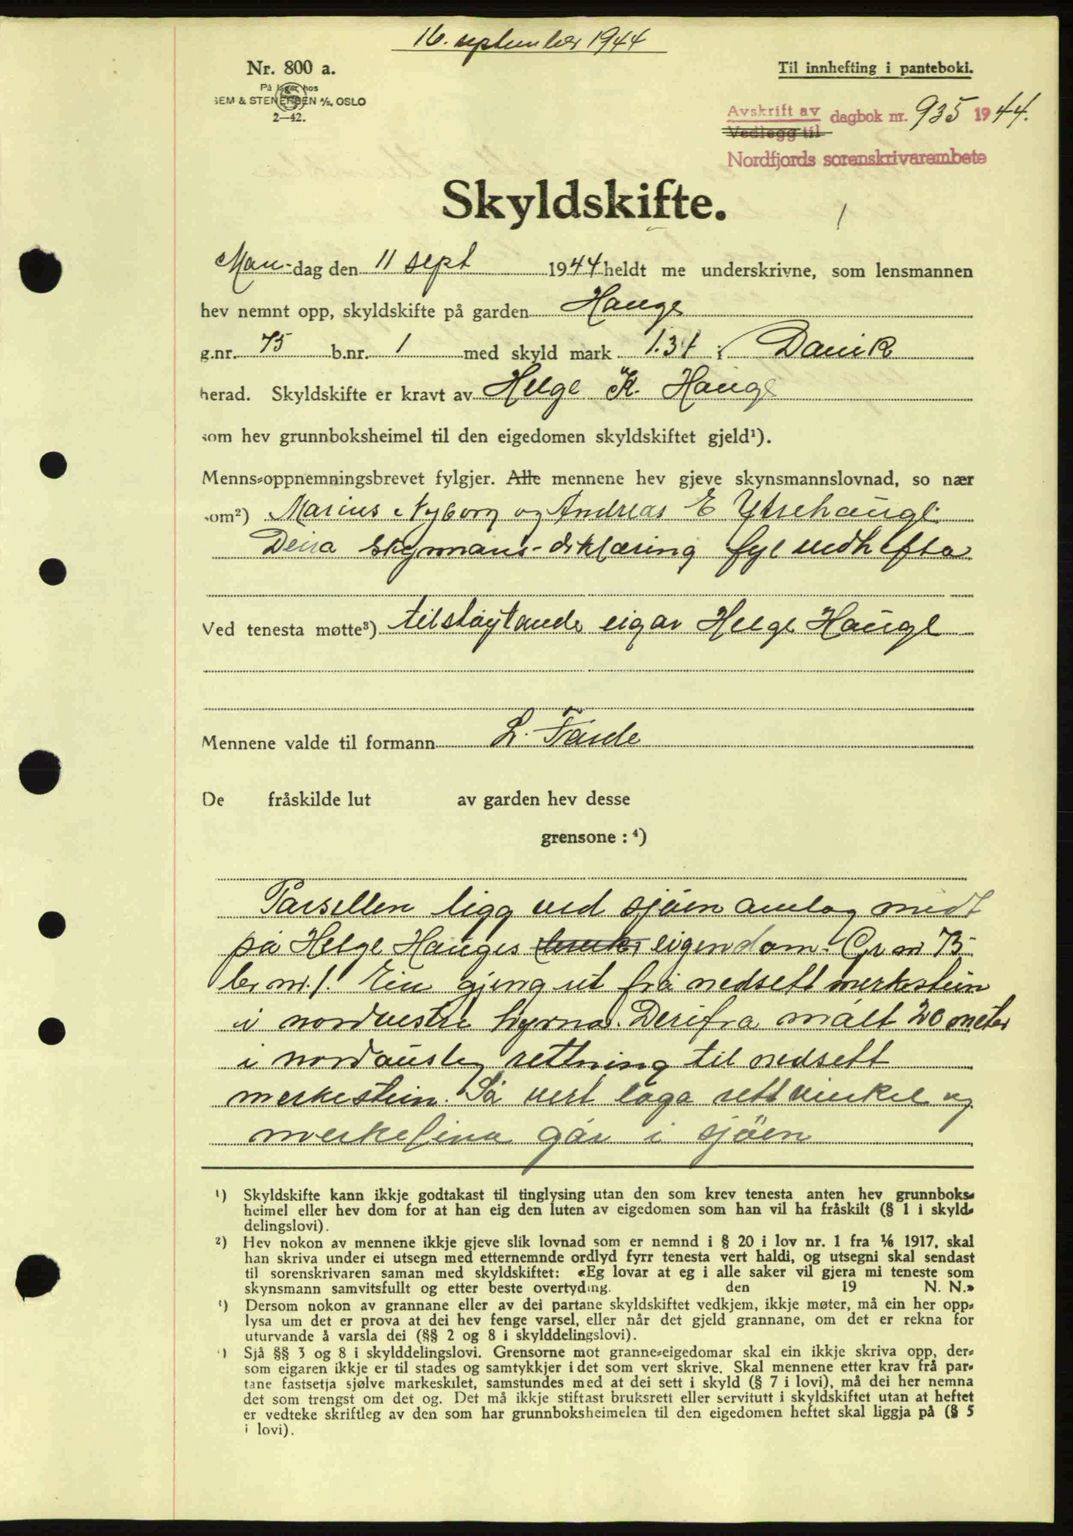 16. september 1944
Nr. 800 a.
På lager hos
SEM & STENERSEN A/S, OSLO
2—42.
Til innhefting i panteboki.
Avskrift av
Vedlegg til
dagbok nr. 935 1944.
Nordfjords sorenskrivarembete
Skyldskifte.
Man-dag den 11 sept 1944 heldt me underskrivne, som lensmannen
hev nemnt opp, skyldskifte på garden Hauge
g.nr. 75 b.nr. 1 med skyld mark 1.31 i Davik
herad. Skyldskifte er kravt av Helge K. Hauge
som hev grunnboksheimel til den eigedomen skyldskiftet gjeld¹).
Menns-oppnemningsbrevet fylgjer. Alle mennene hev gjeve skynsmannslovnad, so nær
som²) Marius Nyborg og Andreas E Ytrehauge.
Deira skynmans-deklæring fyl vedhefta
Ved tenesta møtte³) tilstøytande eigar Helge Hauge
Mennene valde til formann L. Førde
De fråskilde lut av garden hev desse
grensone : ⁴)
Parsellen ligg ved sjøen anlag midt
på Helge Hauges eigendom. Gr nr 75
br nr. 1. Ein gjeng ut frå nedsett merkestein
i nordvestre hyrna. Derifra målt 20 meter
i nordaustleg rettning til nedsett
merkestein. Så vert laga rett vinkel og
merkelina går i sjøen
¹) Skyldskifte kann ikkje godtakast til tinglysing utan den som krev tenesta anten hev grunnboks-
heimel eller hev dom for at han eig den luten av eigedomen som han vil ha fråskilt (§ 1 i skyld-
delingslovi).
²) Hev nokon av mennene ikkje gjeve slik lovnad som er nemnd i § 20 i lov nr. 1 fra 1/6 1917, skal
han skriva under ei utsegn med etternemnde ordlyd fyrr tenesta vert haldi, og utsegni skal sendast
til sorenskrivaren saman med skyldskiftet: «Eg lovar at eg i alle saker vil gjera mi teneste som
skynsmann samvitsfullt og etter beste overtyding. den 19 N. N.»
³) Dersom nokon av grannane eller av dei partane skyldskiftet vedkjem, ikkje møter, må ein her opp-
lysa um det er prova at dei hev fenge varsel, eller når det gjeld grannane, om det er rekna for
uturvande å varsla dei (§§ 2 og 8 i skylddelingslovi).
⁴) Sjå §§ 3 og 8 i skylddelingslovi. Grensorne mot granne-eigedomar skal ein ikkje skriva opp, der-
som eigaren ikkje er til stades og samtykkjer i det som vert skrive. Skal mennene etter krav frå par-
tane fastsetja sjølve markeskilet, samstundes med at dei sett i skyld (§ 7 i lovi), må dei her nemna
det som trengst om det og. Det må ikkje stiftast bruksrett eller servitutt i skyldskiftet utan at heftet
er vedteke skriftleg av den som har grunnboksheimelen til den eigedomen heftet skal liggja på (§ 5
i lovi).